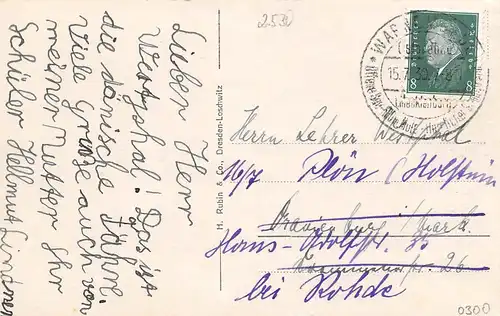 2530
Lieber Herr
Westphal! Das ist
die dänische Fähre.
Viele Grüsse auch von
meiner Mutter Ihr
Schüler Hellmut Lintner
H. Rubin & Co., Dresden-Loschwitz
WAR
15.7.30
DEUTSCHES REICH
8 8
Herrn Lehrer Westphal
16/7 Plön (Holstein
Brandenburg / Mark
Hans-Adolfstr. 35
26
bei Rohde
0300